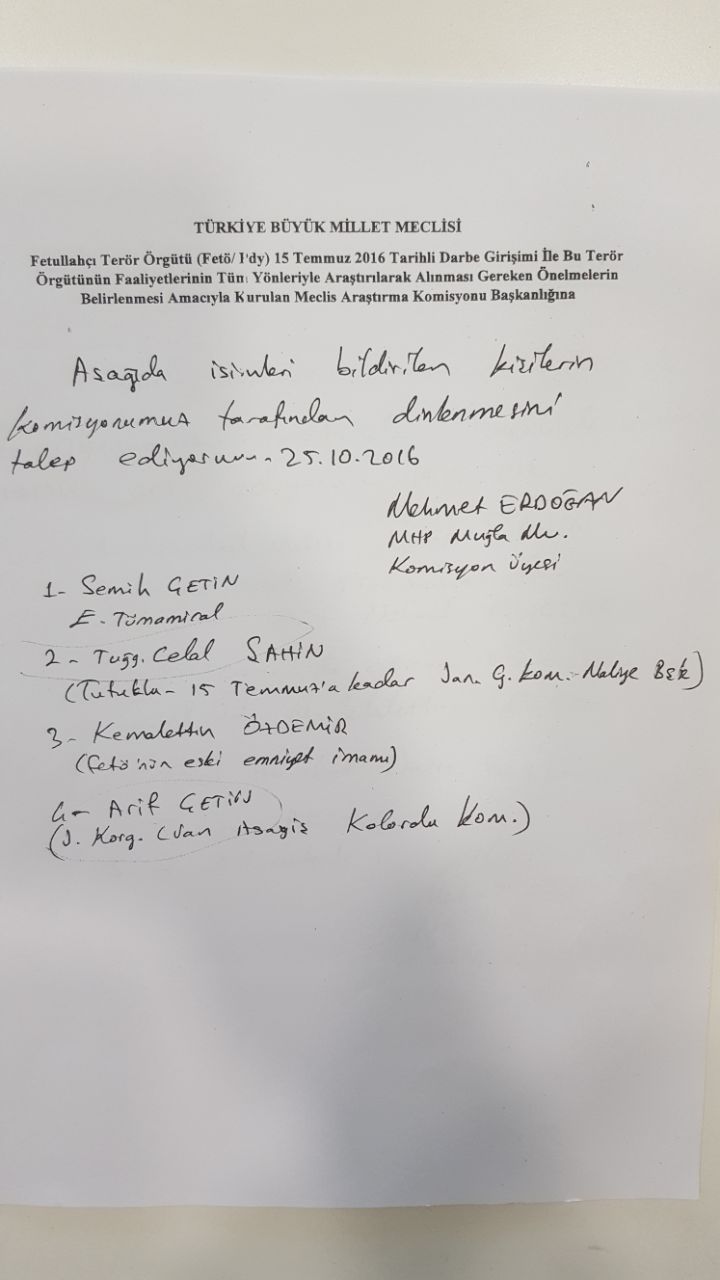 TÜRKİYE BÜYÜK MİLLET MECLİSİ
Fetullahçı Terör Örgütü (Fetö/ I'dy) 15 Temmuz 2016 Tarihli Darbe Girişimi İle Bu Terör
Örgütünün Faaliyetlerinin Tün Yönleriyle Araştırılarak Alınması Gereken Önelmelerin
Belirlenmesi Amacıyla Kurulan Meclis Araştırma Komisyonu Başkanlığına
Asağıda isimleri bildirilen kişilerin
komisyonumuz tarafından dinlenmesini
talep ediyorum. 25.10.2016
Mehmet ERDOĞAN
MHP Muğla Mv.
Komisyon Üyesi
1- Semih ÇETİN
E. Tümamiral
2- Tuğg. Celal ŞAHİN
(Tutuklu - 15 Temmuz'a kadar Jan. G. Kom. Maliye Bşk)
3- Kemalettin ÖZDEMİR
(Fetö'nün eski emniyet imamı)
4- Arif ÇETİN
(J. Korg. (Van Asayiş Kolordu Kom.)